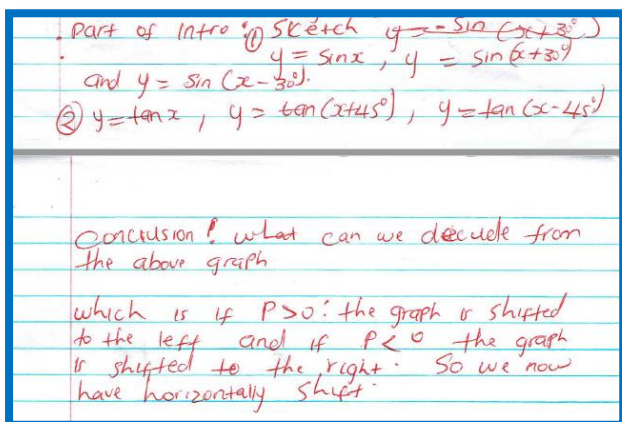 . Part of Intro : ① Sketch y = - Sin (x+30°)
. y = Sinx , y = Sin (x+30°)
and y = Sin (x-30°).
② y=tanx , y = tan (x+45°) , y = tan (x-45°)
Conclusion ! what can we decude from
the above graph
which is if P>0: the graph is shifted
to the left and if P<0 the graph
is shifted to the right. So we now
have horizontally shift.